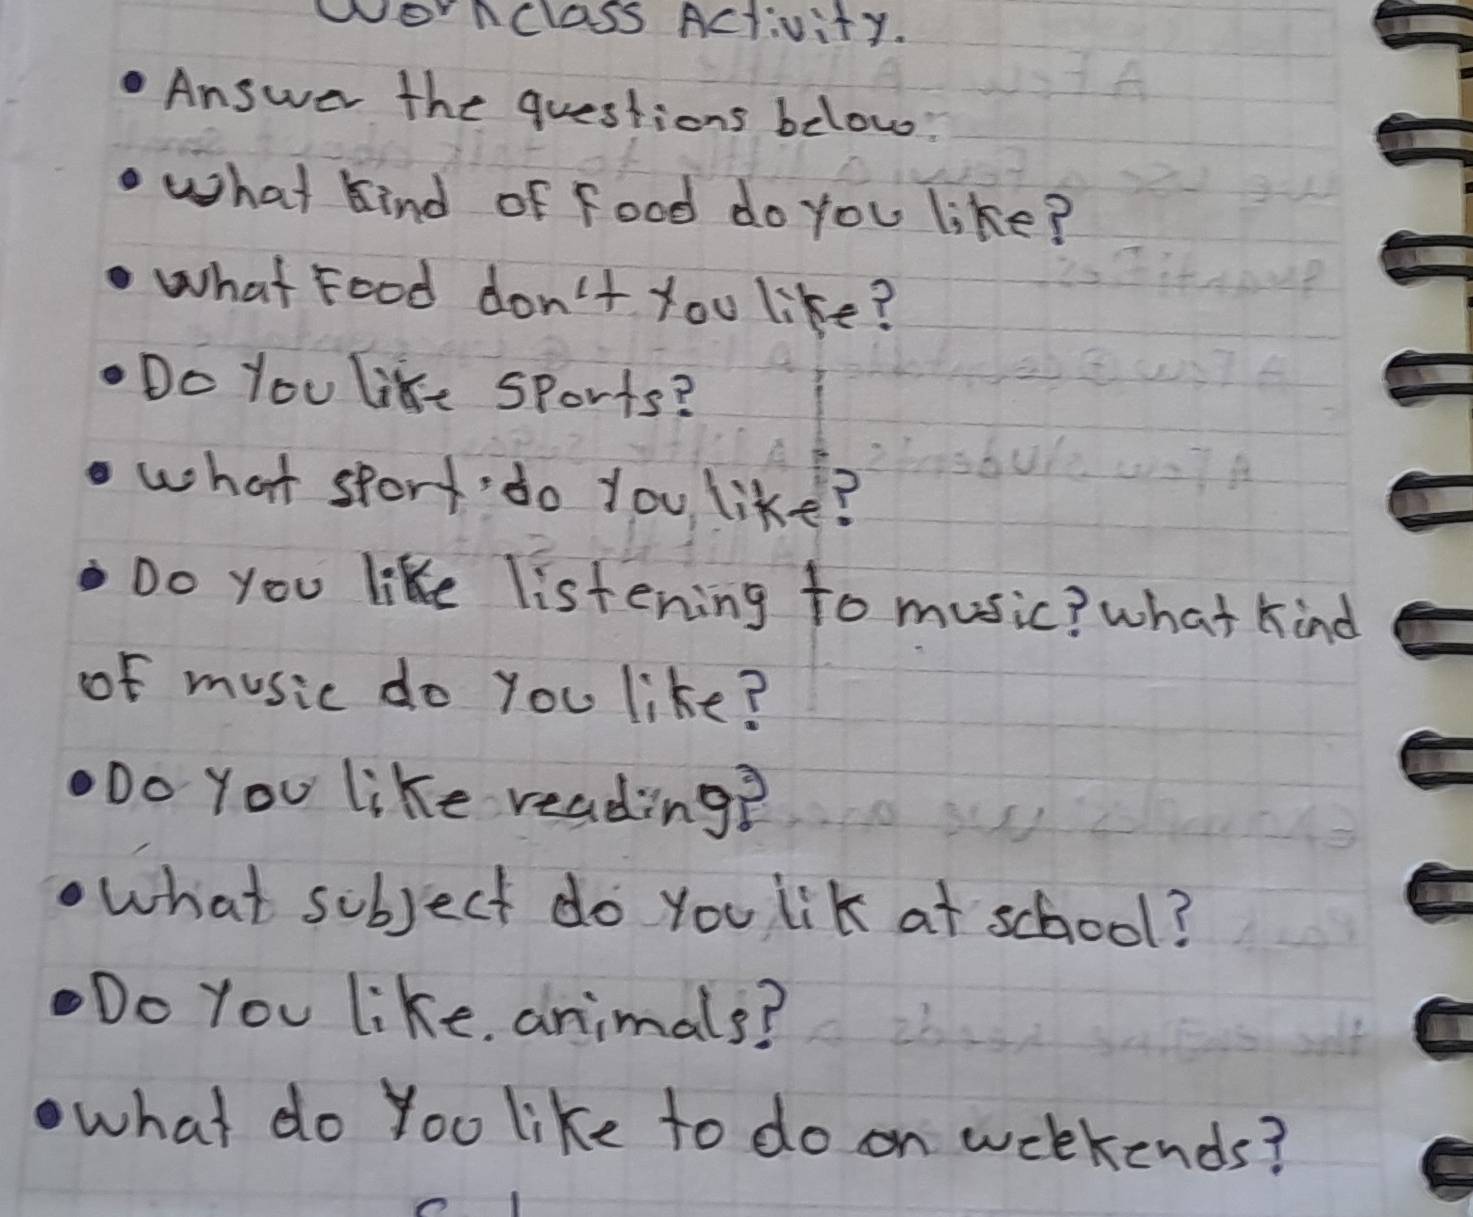 Workclass Activity.
• Answer the questions below:
• What kind of food do you like?
• What food don't you like?
• Do you like sports?
• What sport do you like?
• Do you like listening to music? What kind
of music do you like?
• Do you like reading?
• What subject do you lik at school?
• Do you like animals?
• What do you like to do on weekends?